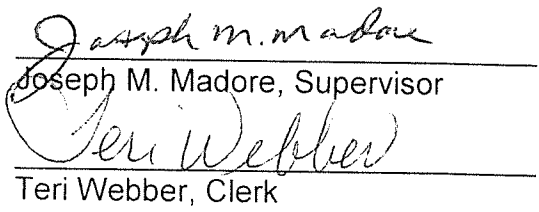 Joseph M. Madore
Joseph M. Madore, Supervisor
Teri Webber
Teri Webber, Clerk